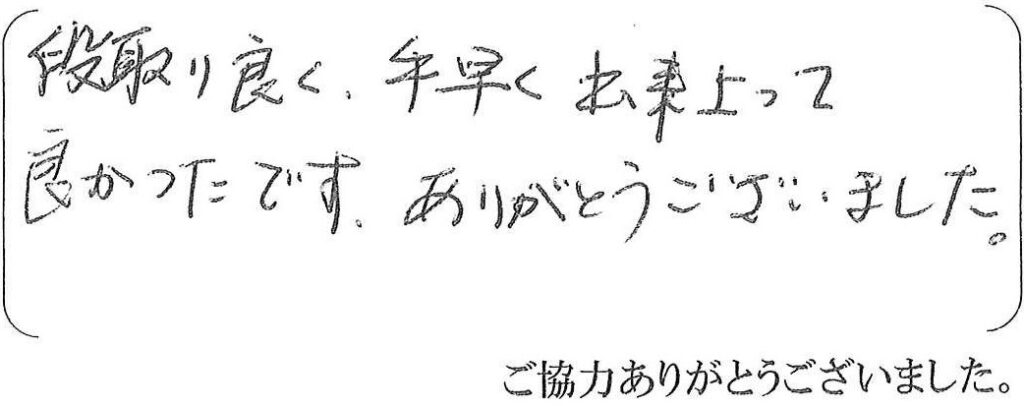 段取り良く、手早く出来上って
良かったです、ありがとうございました。
ご協力ありがとうございました。